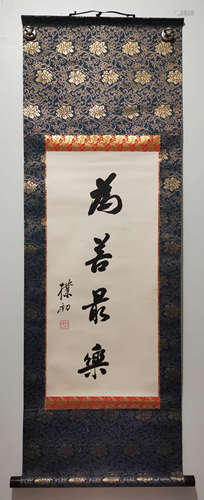 為善最樂
樸初